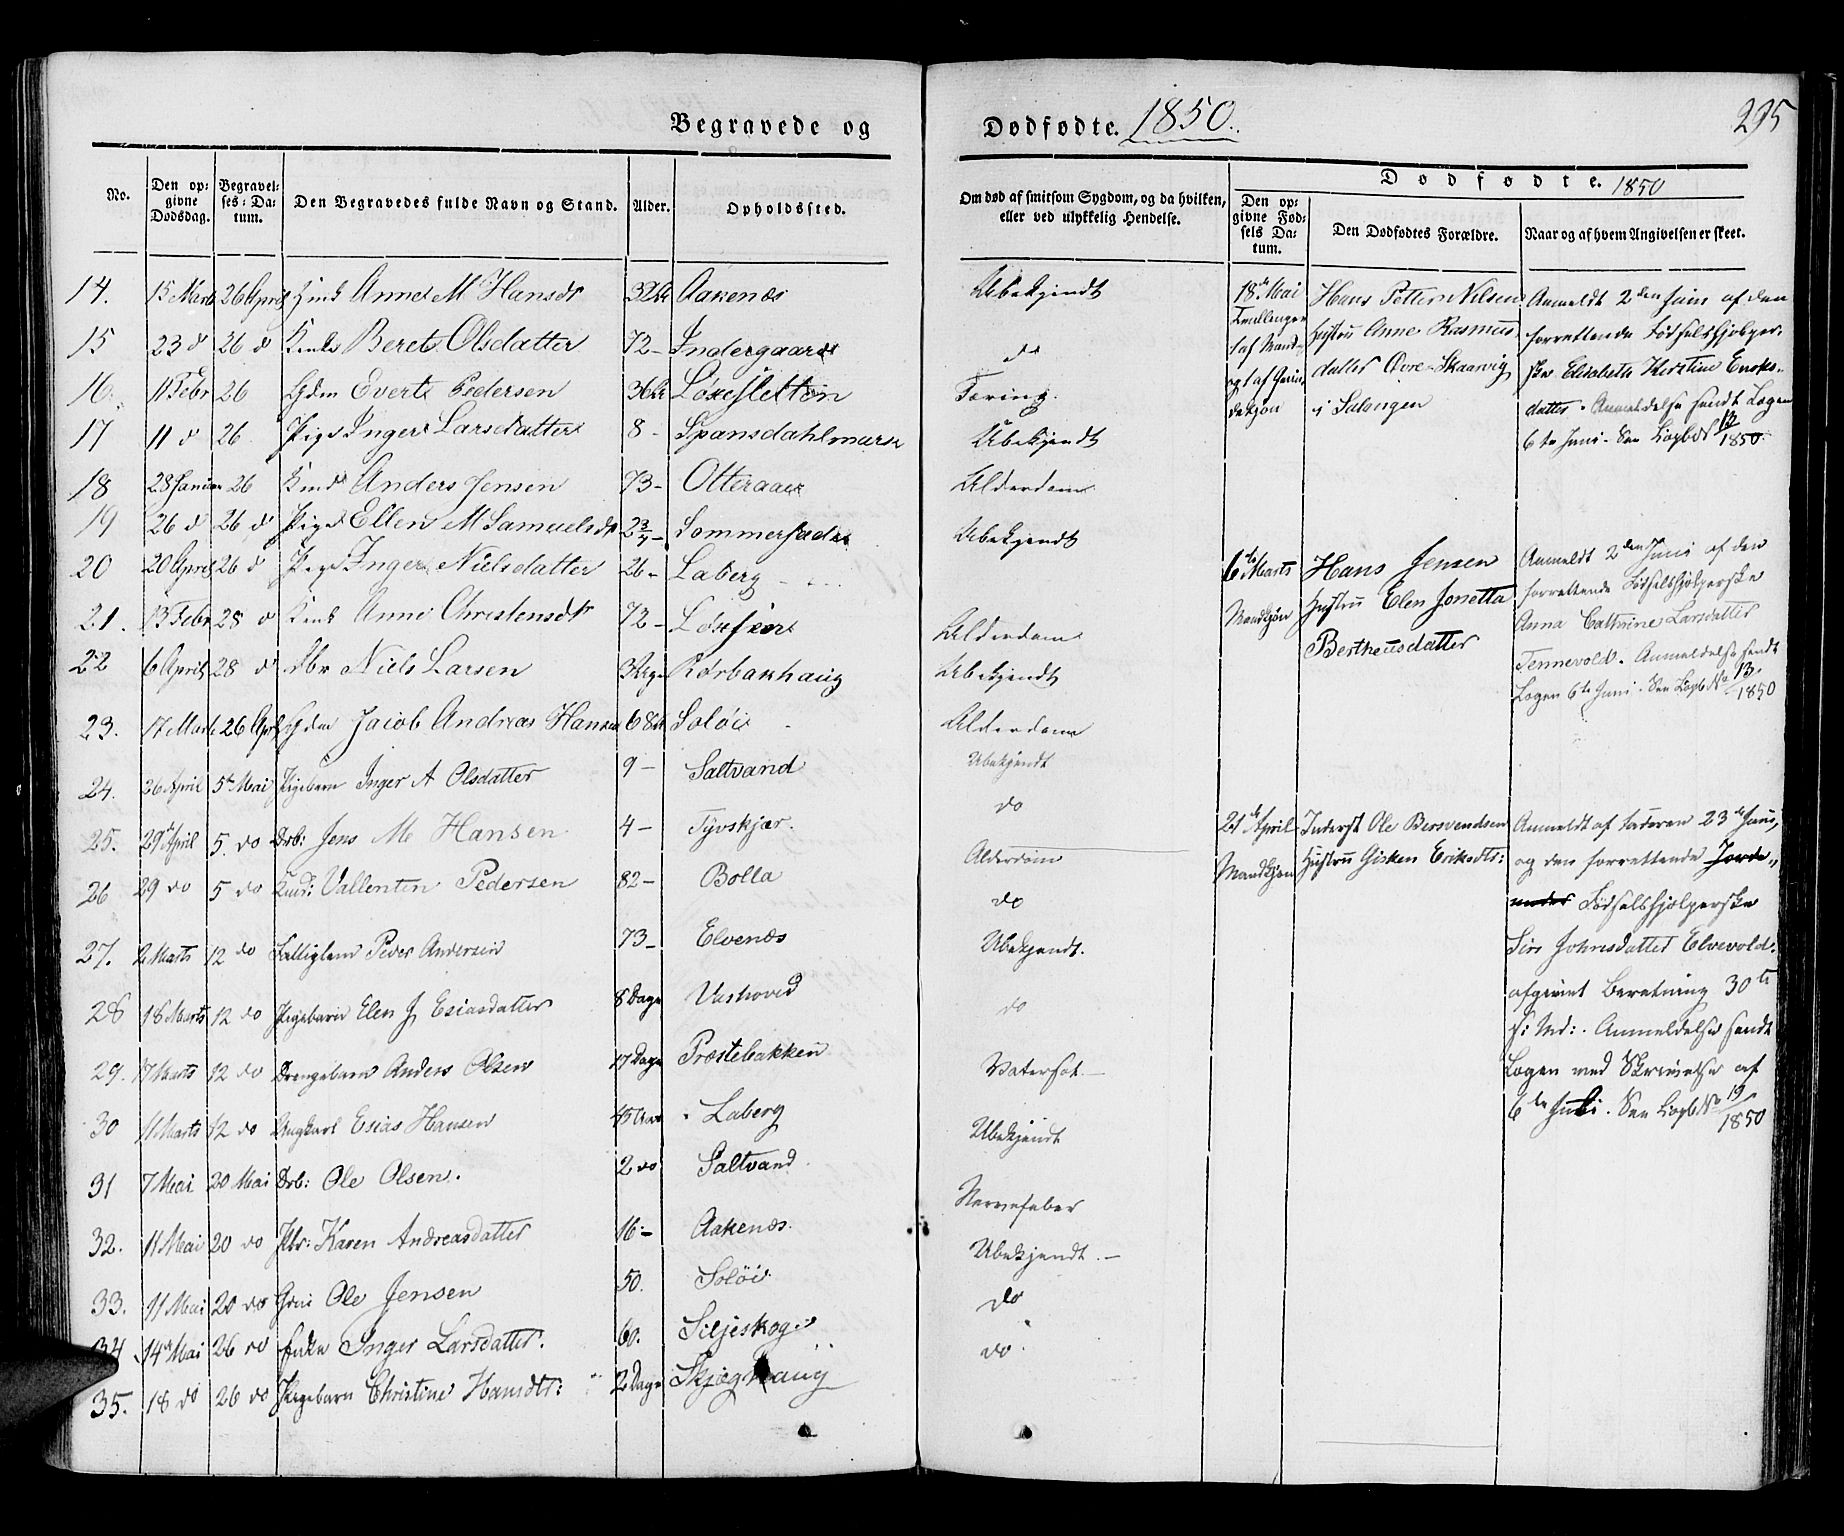 Begravede og Dødfødte. 1850.
295
No.
Den opgivne Dødsdag.
Begravelses-Datum.
Den Begravedes fulde Navn og Stand.
Alder.
Opholdssted.
Om død af smitsom Sygdom, og da hvilken, eller ved ulykkelig Hendelse.
Dødfødte. 1850
Den opgivne Fødsels Datum.
Den Dødfødtes Forældre.
Naar og af hvem Angivelsen er skeet.
14. 15 Marts 26 April Anne M Hansdt 32 Aakenæs Ubekjendt
15 23 d 26 d Beret Olsdatter 72 - Indergaard do
16. 11 Febr 26 Gdm Evert Pedersen 36 Løxesletten Tæring.
17 11 d 26 Pige Inger Larsdatter 8 - Spansdahlmarse Ubekjendt
18 28 Januar 26 Anders Jensen 73 - Otteraae Alderdom
19 26 d 26 d Pige Ellen M Samuelsdt 2 3/4 - Sommersæde Ubekjendt
20 20 April 26 d Pige Inger Nielsdatter 26 - Laberg
21. 13 Febr 28 d Anne Christensdt 72 - Løxefjær Alderdom
22 6 April 28 d Dbr Niels Larsen 3 Rørbakhaug Ubekjendt
23. 17 Marts 26 April Gdm Jacob Andreas Hansen 68 Soløi Alderdom
24. 26 April 5te Mai Pigebarn Inger A Olsdatter 9 - Saltvand Ubekjendt
25. 29de April 5. do Drb: Jens M Hansen 4 - Tyvskjær. do
26 29 do 5 do Vallentin Pedersen 82 - Bolla Alderdom
27. 2 Marts 12 do Fattiglem Peder Andersen 73 - Elvenæs do
28 18 Marts 12 do Pigebarn Elen J Esiasdatter 8 Dage Vashoved Ubekjendt.
29. 17 Marts 12 do Drengebarn Anders Olsen 17 Dage Præstebakken do
30 11 Marts 12 do Ungkarl Esias Hansen 45 Aar Laberg Vatersot. -
31 7 Mai 20 Mai Drb: Ole Olsen. 2 do Saltvand Ubekjendt
32. 11 Mai 20 do Pbr: Karen Andreasdatter 16 - Aakenæs. Nervefeber
33. 11 Mai 20 do Ole Jensen 50. Soløi Ubekjendt. -
34 14de Mai 26 do Enke Inger Larsdatter. 60. Siljeskoge do
35. 18 do 26 do Pigebarn Christine Hansdt: 2 Dage Skjæghaug do.
18de Mai
Tvillinger
1 af Mand-
og 1 af Qvin-
dekjøn
Hans Petter Nilsen
Hustru Anne Rasmus-
datter Øvre-Skaarvig
i Salangen
Anmeldt 2den Juni af den
forrettende Fødselshjelper-
ske Elisabeth Kirstine Enoks-
datter. Anmeldelse sendt Logen
6te Juni. See Copb No 12/1850.
6te Marts
Mandkjøn
Hans Jensen
Hustru Elen Jonetta
Bertheusdatter
Anmeldt 2den Juni af den
forrettende Fødselshjelperske
Anna Cathrine Larsdatter
Tennevold. Anmeldelse sendt
Logen 6te Juni. See Copb No 13/1850
21de April
Mandkjøn
Inderst Ole Bersvendsen
Hustru Gisken Eriksdt:
Anmeldt af Faderen 23de Juni,
og den forrettende Jorde-
moder Fødselshjelperske
Siri Johnsdatter Elvevold.
afgivet Beretning 30te
s: Md:. Anmeldelse sendt
Logen med Skrivelse af
6te Juli. See Copb No 19/1850